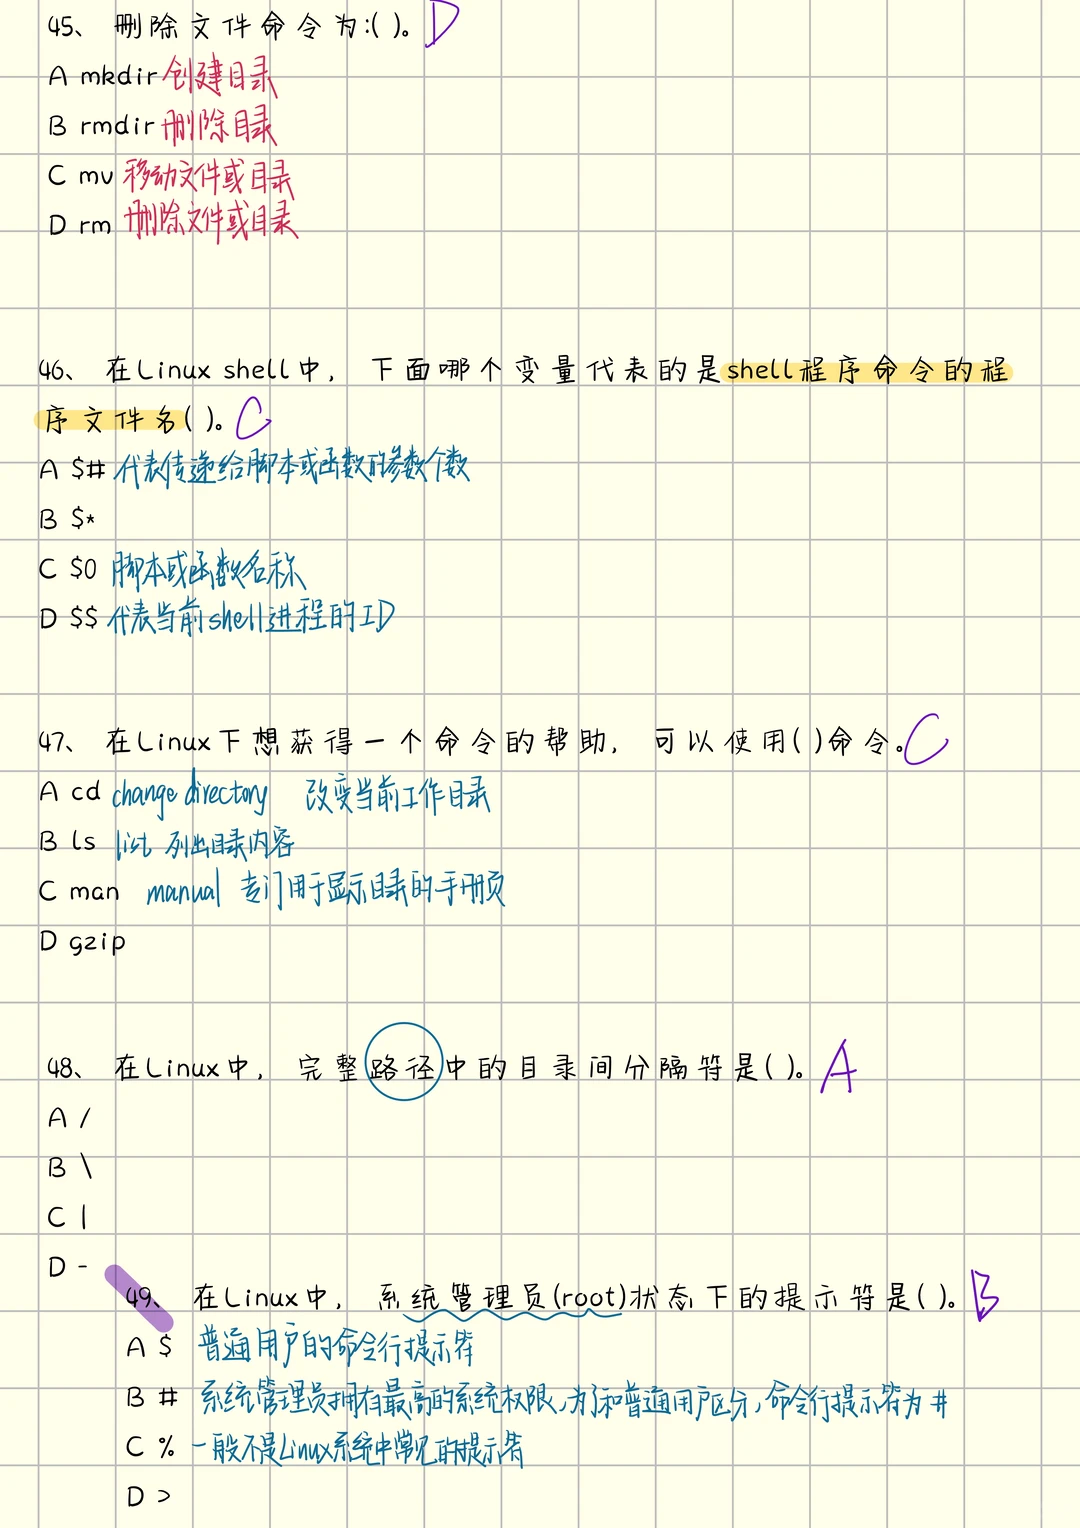 45、删除文件命令为:( )。D
A mkdir 创建目录
B rmdir 删除目录
C mv 移动文件或目录
D rm 删除文件或目录
46、在Linux shell中，下面哪个变量代表的是shell程序命令的程
序文件名( )。C
A $# 代表传递给脚本或函数的参数个数
B $*
C $0 脚本或函数名称
D $$ 代表当前shell进程的ID
47、在Linux下想获得一个命令的帮助，可以使用( )命令。C
A cd change directory 改变当前工作目录
B ls list 列出目录内容
C man manual 专门用于显示目录的手册页
D gzip
48、在Linux中，完整路径中的目录间分隔符是( )。A
A /
B \
C |
D -
49、在Linux中，系统管理员(root)状态下的提示符是( )。B
A $ 普通用户的命令行提示符
B # 系统管理员拥有最高的系统权限,为了和普通用户区分,命令行提示符为#
C % 一般不是Linux系统中常见的提示符
D >